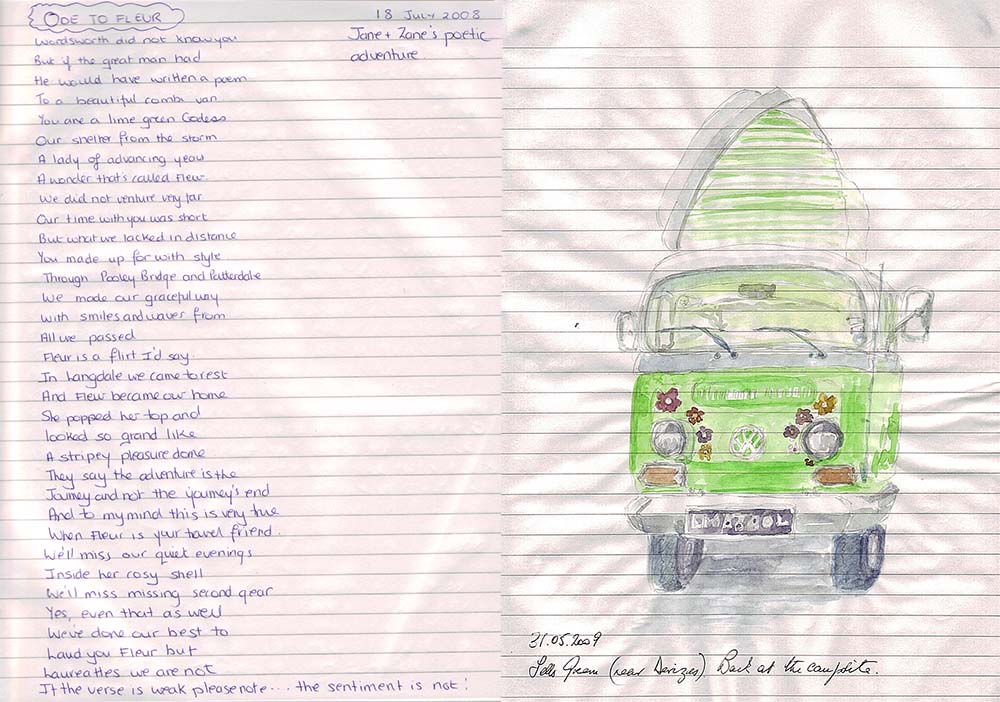 ODE TO FLEUR
18 July 2008
Jane + Zane's poetic
adventure.
Wordsworth did not know you
But if the great man had
He would have written a poem
To a beautiful combi van
You are a lime green Godess
Our shelter from the storm
A lady of advancing years
A wonder that's called Fleur.
We did not venture very far
Our time with you was short
But what we lacked in distance
You made up for with style
Through Pooley Bridge and Patterdale
We made our graceful way
With smiles and waves from
All we passed
Fleur is a flirt I'd say.
In Langdale we came to rest
And Fleur became our home
She popped her top and
looked so grand like
A stripey pleasure dome
They say the adventure is the
Journey and not the journey's end
And to my mind this is very true
When Fleur is your travel friend.
We'll miss our quiet evenings
Inside her cosy shell
We'll miss missing second gear
Yes, even that as well
We've done our best to
Laud you Fleur but
Laureattes we are not
If the verse is weak please note... the sentiment is not!
VW
31.05.2009
Sells Green (near Devizes). Back at the campsite.